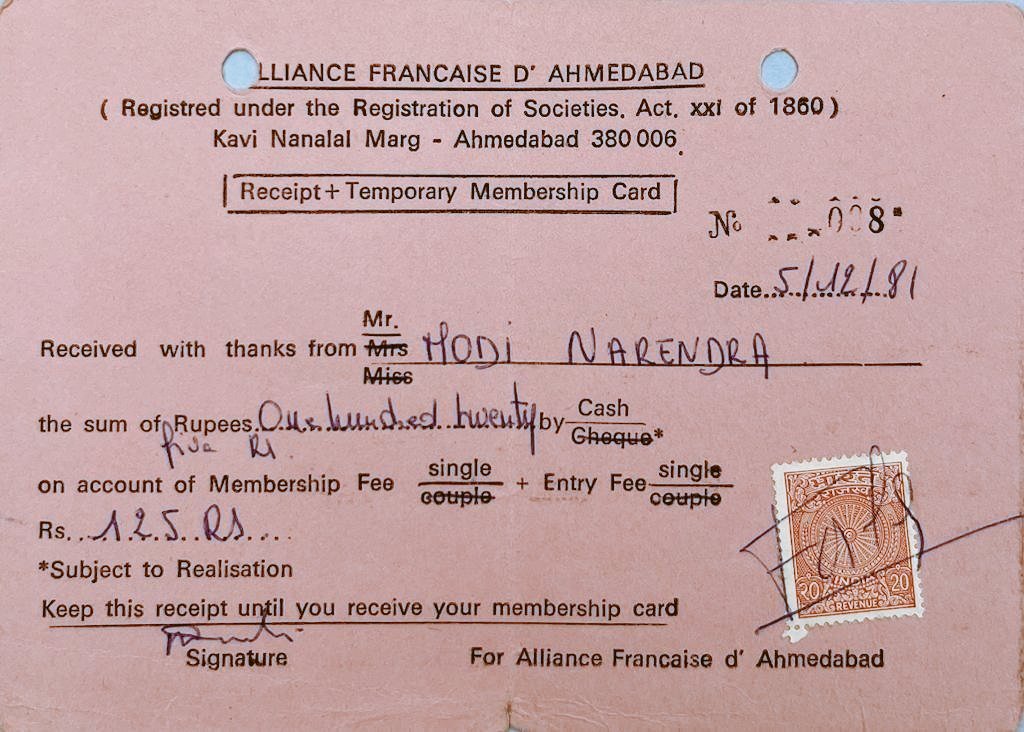 LLIANCE FRANCAISE D' AHMEDABAD
( Registred under the Registration of Societies. Act. xxi of 1860 )
Kavi Nanalal Marg - Ahmedabad 380 006.
Receipt + Temporary Membership Card
No 008
Date..5/12/81
Mr.
Received with thanks from Mrs MODI NARENDRA
Miss
the sum of Rupees. One hundred twenty by Cash
Cheque*
five Rs.
on account of Membership Fee single + Entry Fee single
couple couple
Rs...125 RS....
*Subject to Realisation
Keep this receipt until you receive your membership card
Signature For Alliance Francaise d' Ahmedabad
INDIA
20 20
REVENUE